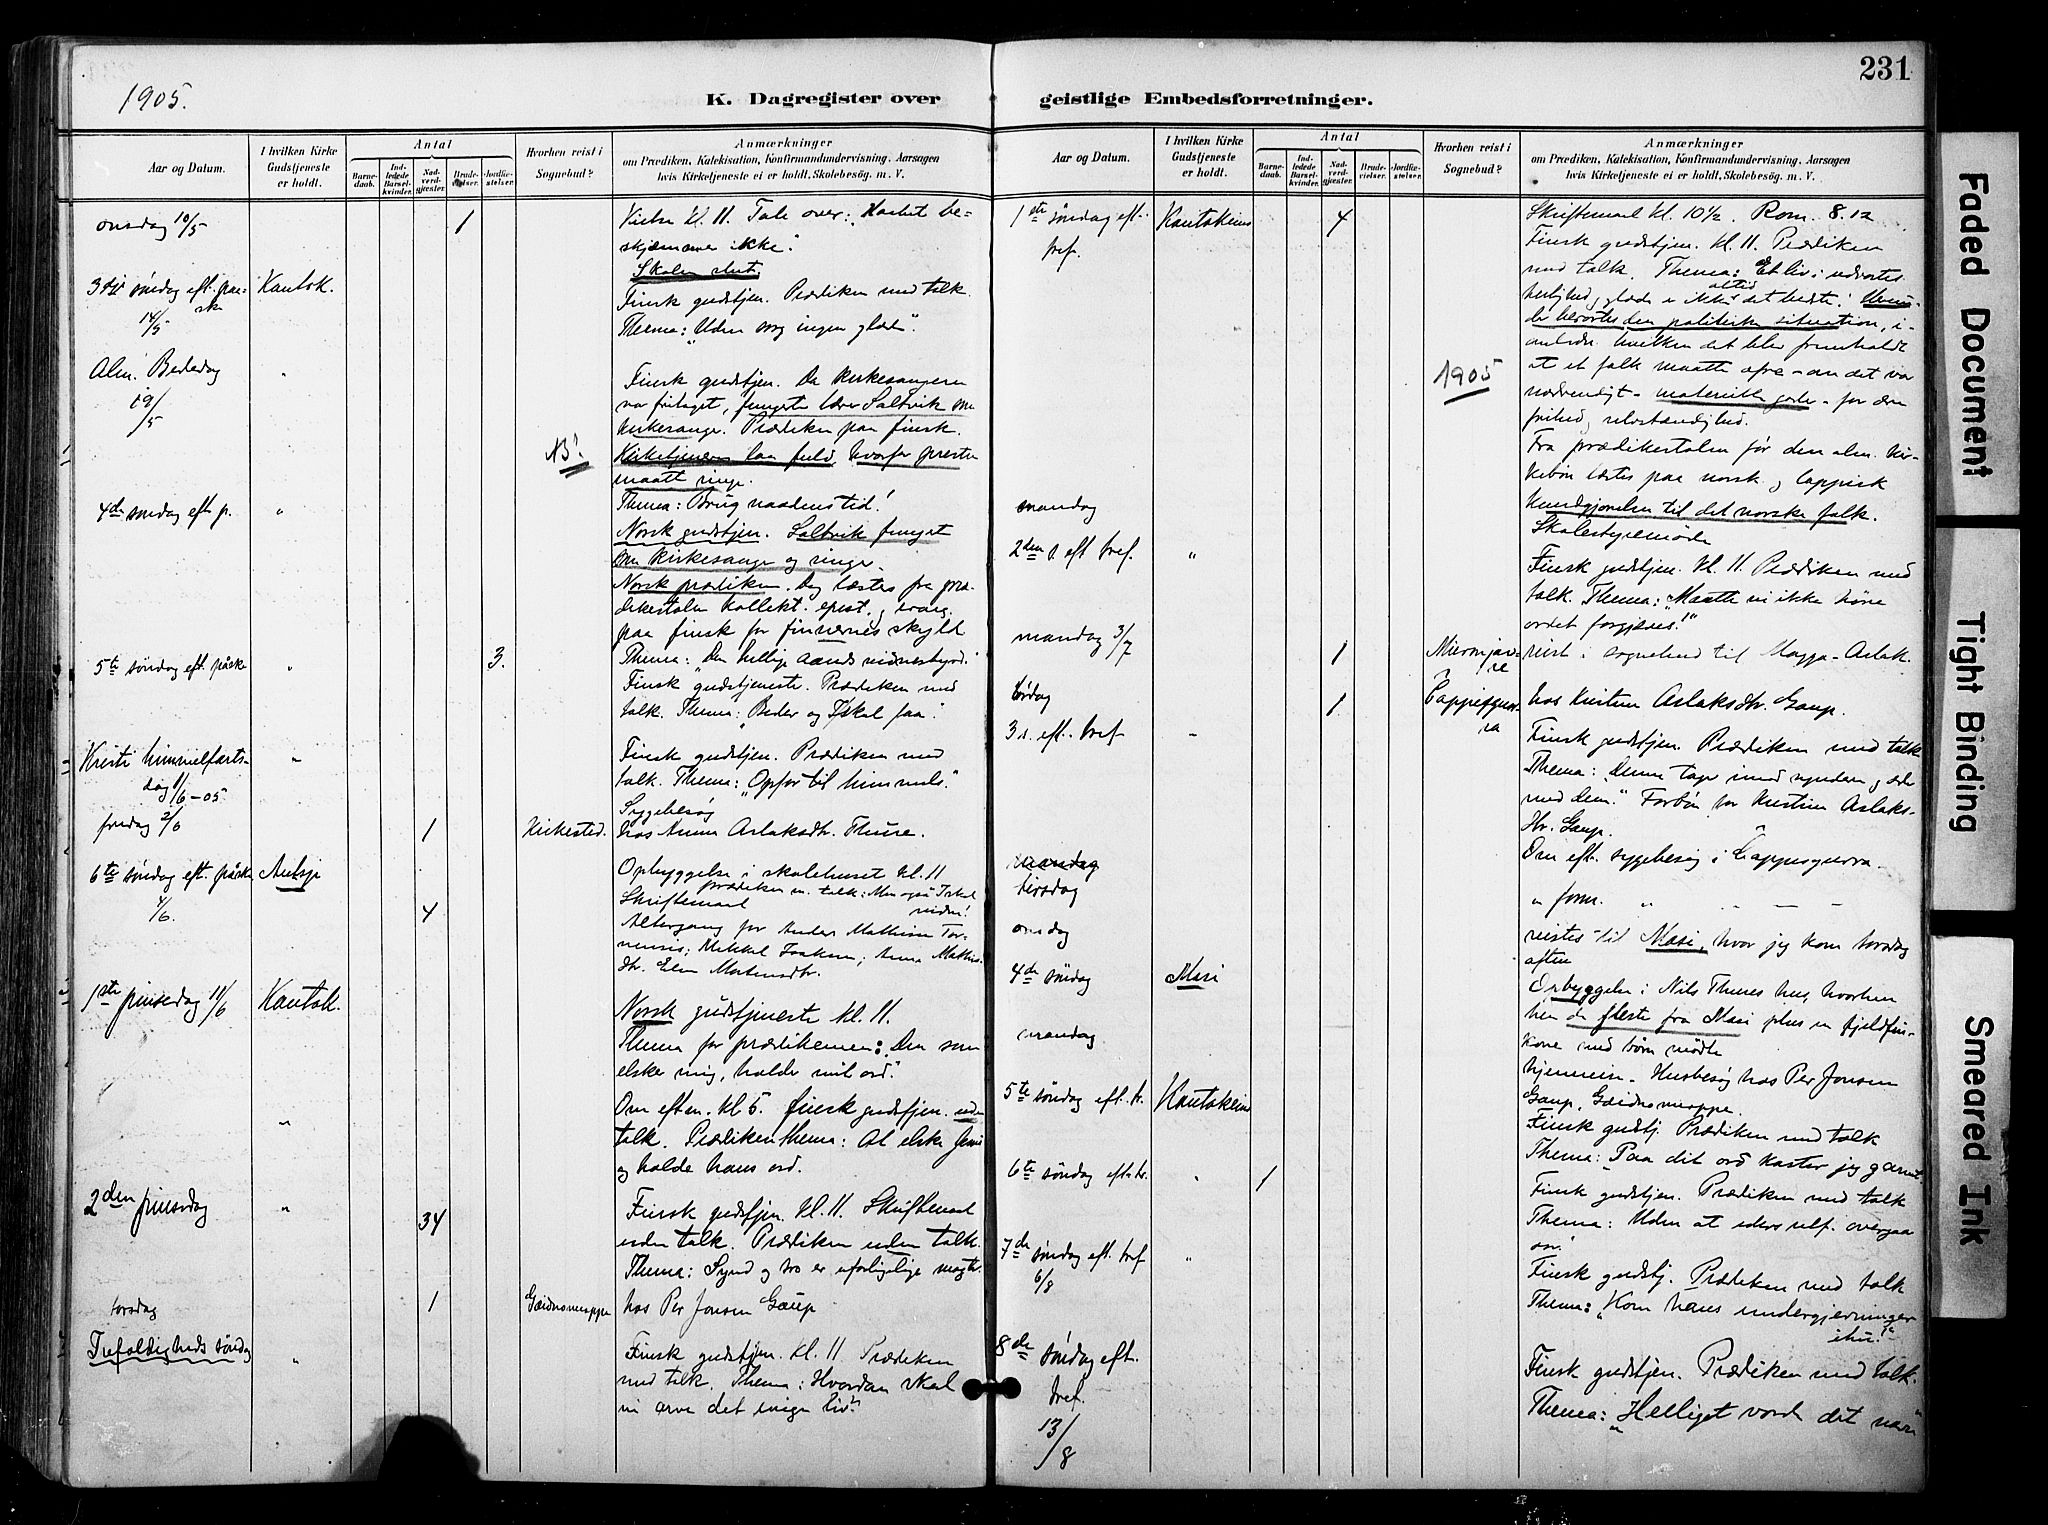 1905.
K. Dagregister over
Aar og Datum.
I hvilken Kirke Gudstjeneste er holdt.
Antal
Barnedaab.
Indledede Barselkvinder.
Nadverdgjester.
Brudevielser.
Jordfæstelser.
Hvorhen reist i Sognebud?
Anmærkninger
om Prædiken, Katekisation, Konfirmandundervisning, Aarsagen
hvis Kirketjeneste ei er holdt, Skolebesøg, m. V.
onsdag 10/5
1
Vielse kl. 11. Tale over: Haabet be-
skjæmmer ikke".
Skolen slut.
3dje søndag eft. paa-
ske
14/5
Kautok.
Finsk gudstjen. Prædiken med tolk.
Thema: "Uden sorg ingen glæde".
Alm. Bededag
19/5
"
Finsk gudstjen. Da kirkesangeren
var fritaget, fungerte lærer Saltvik som
kirkesanger. Prædiken paa finsk.
NB!
Kirketjeneren laa fuld, hvorfor presten
maatte ringe.
Thema: Brug naadens tid!
4de søndag eft p.
"
Norsk gudstjen. Saltvik fungert
som kirkesanger og ringer.
Norsk prædiken. Dog læstes fra præ-
dikestolen kollekt. epist. og evang.
paa finsk for finnernes skyld
Thema: "Den hellige aands vidnesbyrd."
5te søndag eft. påske
"
3.
Finsk gudstjeneste. Prædiken med
tolk. Thema: "Beder og I skal faa".
Kristi himmelfarts-
dag 1/6-05
"
Finsk gudstjen. Prædiken med
tolk. Thema: "Opfor til himmels".
Sygebesøg
fredag 2/6
1
Kirkested.
hos Anna Aslaksdtr. Thure.
6te søndag eft. påske
4/6.
Autsje
4
Opbyggelse i skolehuset kl. 11
prædiken m. tolk: Men også I skal
vidne!
Skriftemaal
Altergang for Anders Mathisen Tor-
nensis; Mikkel Isaksen; Anna Mathis-
dtr. Elen Mortensdtr.
1ste pinsedag 11/6
Kautok.
Norsk gudstjeneste kl. 11.
Thema for prædikenen: "Den som
elsker mig, holder mit ord."
"
Om eftm. kl 5. finsk gudstjen. uden
tolk. Prædikenthema: At elske Jesus
og holde hans ord.
2den pinsedag
"
34
Finsk gudstjen. kl. 11. Skriftemaal
uden tolk. Prædiken uden tolk.
Thema: Synd og tro er uforligelige magter.
torsdag
1
Gæidnomuoppe
hos Per Jonsen Gaup
Trefoldigheds søndag
"
Finsk gudstjen. kl. 11 Prædiken
med tolk. Thema: Hvordan skal
vi arve det evige liv?
231
geistlige Embedsforretninger.
Aar og Datum.
I hvilken Kirke Gudstjeneste er holdt.
Antal
Barnedaab.
Indledede Barselkvinder.
Nadverdgjester.
Brudevielser.
Jordfæstelser.
Hvorhen reist i Sognebud?
Anmærkninger
om Prædiken, Katekisation, Konfirmandundervisning, Aarsagen
hvis Kirketjeneste ei er holdt, Skolebesøg, m. V.
1ste søndag eft.
tref.
Kautokeino
4
Skriftemaal kl. 10½. Rom. 8.12
Finsk gudstjen. kl. 11. Prædiken
med tolk. Thema: Et liv i udvortes
herlighed og glæde er ikke altid det bedste!
berørtes den politiske situation, i
hvilken det blev fremholdt
1905
at et folk maatte ofre - om det var
nødvendigt - materielle goder - for sin
frihed og selvstændighed.
Fra prædikestolen før den alm. kir-
kebøn læstes paa norsk og lappisk
Kundgjørelsen til det norske folk.
mandag
Skolestyremøde
2den s eft tref.
"
Finsk gudstjen. kl. 11. Prædiken med
tolk. Thema: "Maatte vi ikke høre
ordet forgjæves!"
mandag 3/7
1
Mieronjav-
re
reist i sognebud til Magga-Aslak.
lørdag
1
Cappesguor-
ra
hos Kristine Aslaksdtr. Gaup.
3 s. eft. tref
-
Finsk gudstjen. Prædiken med tolk
Thema: "Denne tager imod syndere og æder
med dem." Forbøn for Kristine Aslaks-
dtr. Gaup.
mandag
Om eft. sygebesøg i Cappesguorra.
tirsdag
" form. " - - -
onsdag
reistes til Masi, hvor jeg kom torsdag
aften
4de søndag
Masi
Opbyggelse i Nils Thures hus, hvorhen
hen de fleste fra Masi plus en fjeldfin-
kone med børn mødte
mandag
hjemreise. Husbesøg hos Per Jonsen
Gaup, Gæidnomuoppe.
5te søndag eft. tr.
Kautokeino
Finsk gudstj. Prædiken med tolk
Thema: "Paa dit ord kaster jeg garnet."
6te søndag eft. tr.
"
1
Finsk gudstjen. Prædiken med tolk
Thema: Uden at eders retf. overgaar
osv."
7de søndag eft. tref
6/8
"
Finsk gudstj. Prædiken med tolk
Thema: "Kom hans undergjerninger
ihu!"
8de søndag eft.
tref.
13/8
Finsk gudstjen. Prædiken med tolk.
Thema: "Helliget vorde dit navn"
Faded Document
Tight Binding
Smeared Ink